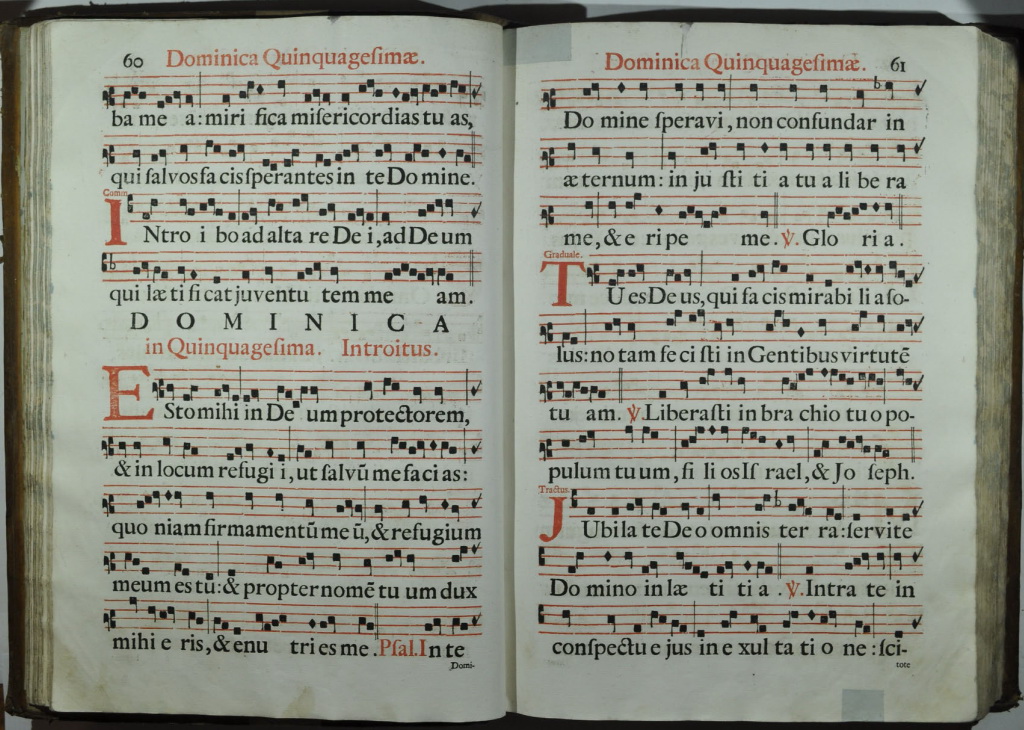 60 Dominica Quinquageſimæ.
ba me a: miri fica miſericordias tu as,
qui ſalvos fa cis ſperantes in te Do mine.
Comm.
INtro i bo ad alta re De i, ad De um
qui læ ti fi cat juventu tem me am.
DOMINICA
in Quinquageſima. Introitus.
ESto mihi in De um protectorem,
& in locum refugi i, ut ſalvū me faci as:
quo niam firmamentū me ū, & refugium
meum es tu: & propter nomē tu um dux
mihi e ris, & enu tri es me. Pſal. In te
Domi-
Dominica Quinquageſimæ. 61
Do mine ſperavi, non confundar in
æ ternum: in ju ſti ti a tu a li be ra
me, & e ri pe me. ℣. Glo ri a.
Graduale.
TU es De us, qui fa cis mirabi li a ſo-
lus: no tam fe ci ſti in Gentibus virtutē
tu am. ℣. Liberaſti in bra chio tu o po-
pulum tu um, fi li os Iſ rael, & Jo ſeph.
Tractus.
JUbila te De o omnis ter ra: ſervite
Do mino in læ ti ti a. ℣. Intra te in
conſpectu e jus in e xul ta ti o ne: ſci-
tote